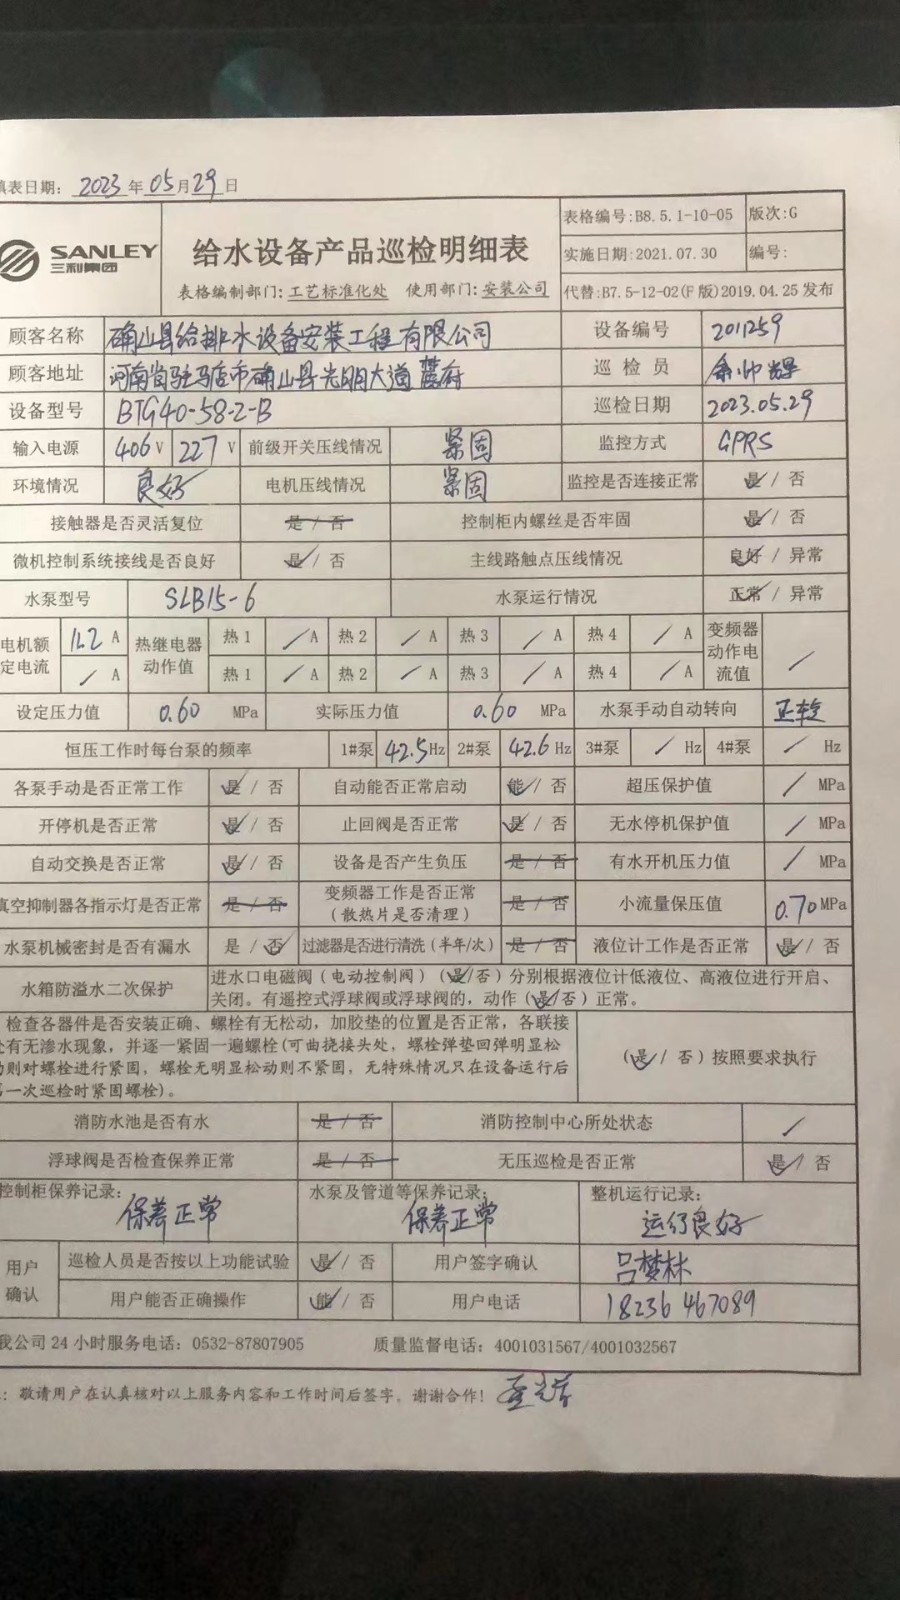 填表日期： 2023 年 05 月 29 日
SANLEY
三利集团
给水设备产品巡检明细表
表格编制部门：工艺标准化处 使用部门：安装公司
表格编号:B8.5.1-10-05 版次:G
实施日期:2021.07.30 编号:
代替:B7.5-12-02(F 版)2019.04.25 发布
顾客名称 确山县给排水设备安装工程有限公司 设备编号 2011259
顾客地址 河南省驻马店市确山县光明大道 府 巡检员
设备型号 BTG40-58-2-B 巡检日期 2023.05.29
输入电源 406 V 227 V 前级开关压线情况 紧固 监控方式 GPRS
环境情况 良好 电机压线情况 紧固 监控是否连接正常 是 / 否
接触器是否灵活复位 是 / 否 控制柜内螺丝是否牢固 是 / 否
微机控制系统接线是否良好 是 / 否 主线路触点压线情况 良好 / 异常
水泵型号 SLB15-6 水泵运行情况 正常 / 异常
电机额定电流 11.2 A 热继电器动作值 热 1 / A 热 2 / A 热 3 / A 热 4 / A 变频器动作电流值 /
/ A 热 1 / A 热 2 / A 热 3 / A 热 4 / A
设定压力值 0.60 MPa 实际压力值 0.60 MPa 水泵手动自动转向 正转
恒压工作时每台泵的频率 1#泵 42.5 Hz 2#泵 42.6 Hz 3#泵 / Hz 4#泵 / Hz
各泵手动是否正常工作 是 / 否 自动能否正常启动 能 / 否 超压保护值 / MPa
开停机是否正常 是 / 否 止回阀是否正常 是 / 否 无水停机保护值 / MPa
自动交换是否正常 是 / 否 设备是否产生负压 是 / 否 有水开机压力值 / MPa
真空抑制器各指示灯是否正常 是 / 否 变频器工作是否正常 是 / 否 小流量保压值 0.70 MPa
(散热片是否清理)
水泵机械密封是否有漏水 是 / 否 过滤器是否进行清洗(半年/次) 是 / 否 液位计工作是否正常 是 / 否
水箱防溢水二次保护 进水口电磁阀(电动控制阀)(是/否)分别根据液位计低液位、高液位进行开启、
关闭。有遥控式浮球阀或浮球阀的，动作(是/否)正常。
检查各器件是否安装正确、螺栓有无松动，加胶垫的位置是否正常，各联接
处有无渗水现象，并逐一紧固一遍螺栓(可曲挠接头处，螺栓弹垫回弹明显松
动则对螺栓进行紧固，螺栓无明显松动则不紧固，无特殊情况只在设备运行后
第一次巡检时紧固螺栓)。
(是 / 否)按照要求执行
消防水池是否有水 是 / 否 消防控制中心所处状态 /
浮球阀是否检查保养正常 是 / 否 无压巡检是否正常 是 / 否
控制柜保养记录： 水泵及管道等保养记录： 整机运行记录：
保养正常 保养正常 运行良好
用户确认 巡检人员是否按以上功能试验 是 / 否 用户签字确认 吕梦林
用户能否正确操作 能 / 否 用户电话 18236467089
我公司 24 小时服务电话：0532-87807905 质量监督电话：4001031567/4001032567
：敬请用户在认真核对以上服务内容和工作时间后签字，谢谢合作！